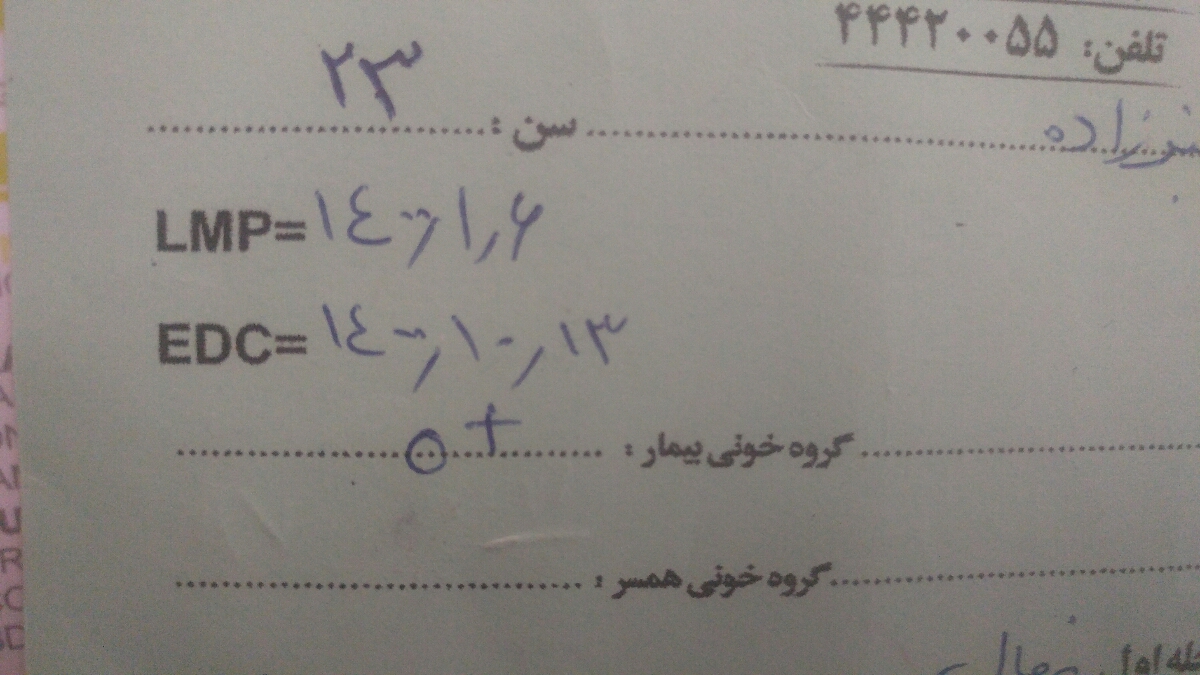 تلفن: ۴۴۴۲۰۰۵۵
سن : ۲۳
LMP= ۱۴۰۰٫۱٫۶
EDC= ۱۴۰۰٫۱۰٫۱۳
گروه خونی بیمار : O+
گروه خونی همسر :